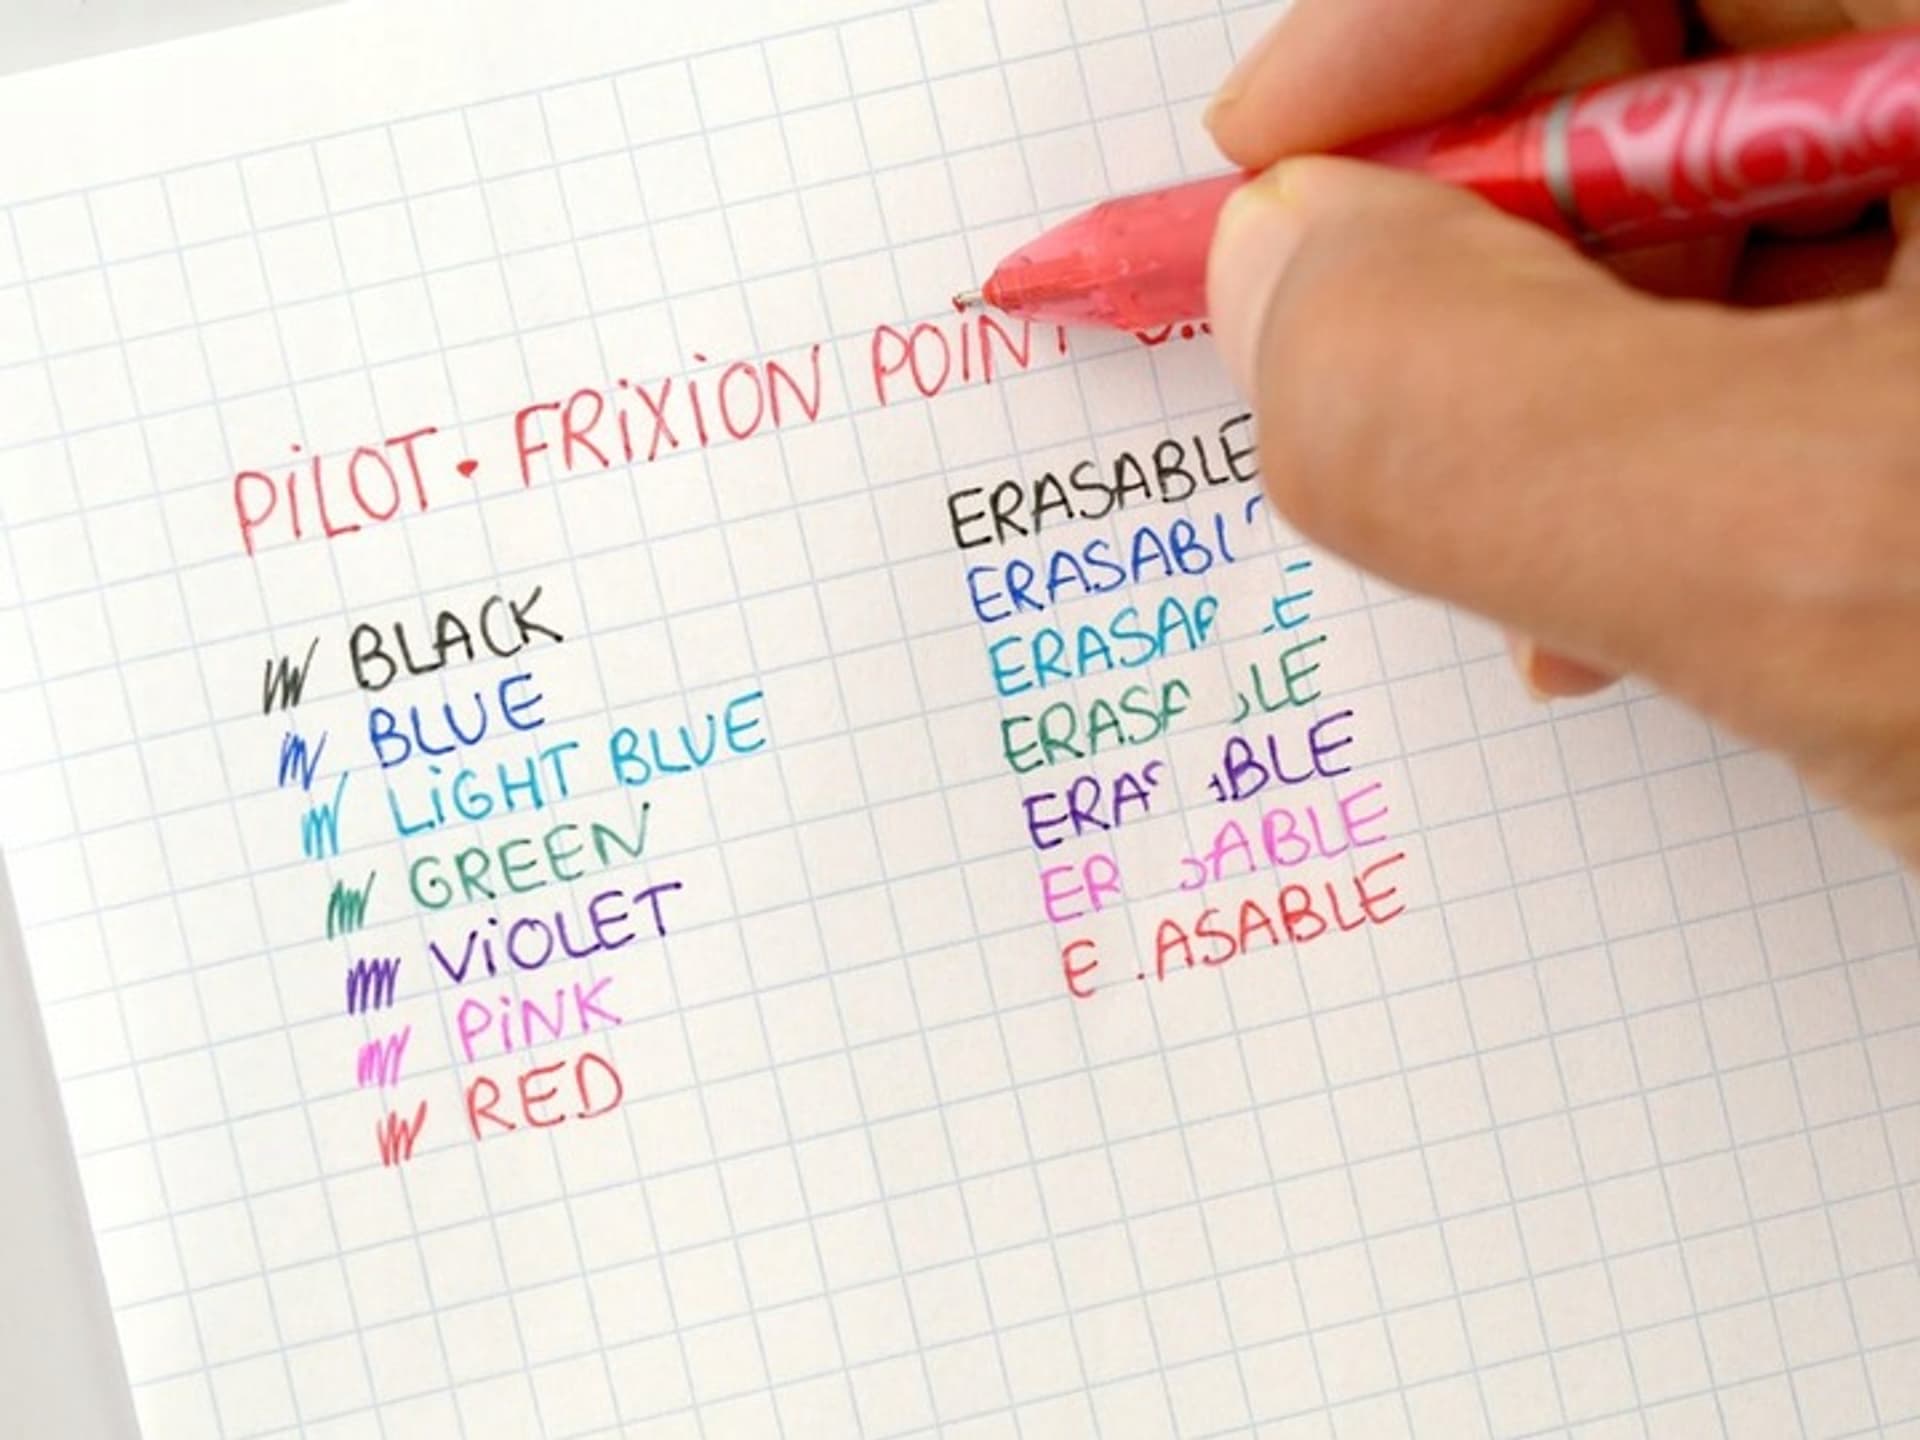 PiLOT • FRiXiON POiNT
BLACK
BLUE
LiGHT BLUE
GREEN
ViOLET
PiNK
RED
ERASABLE
ERASABL
ERASAB E
ERASA LE
ERAS BLE
ER SABLE
E ASABLE